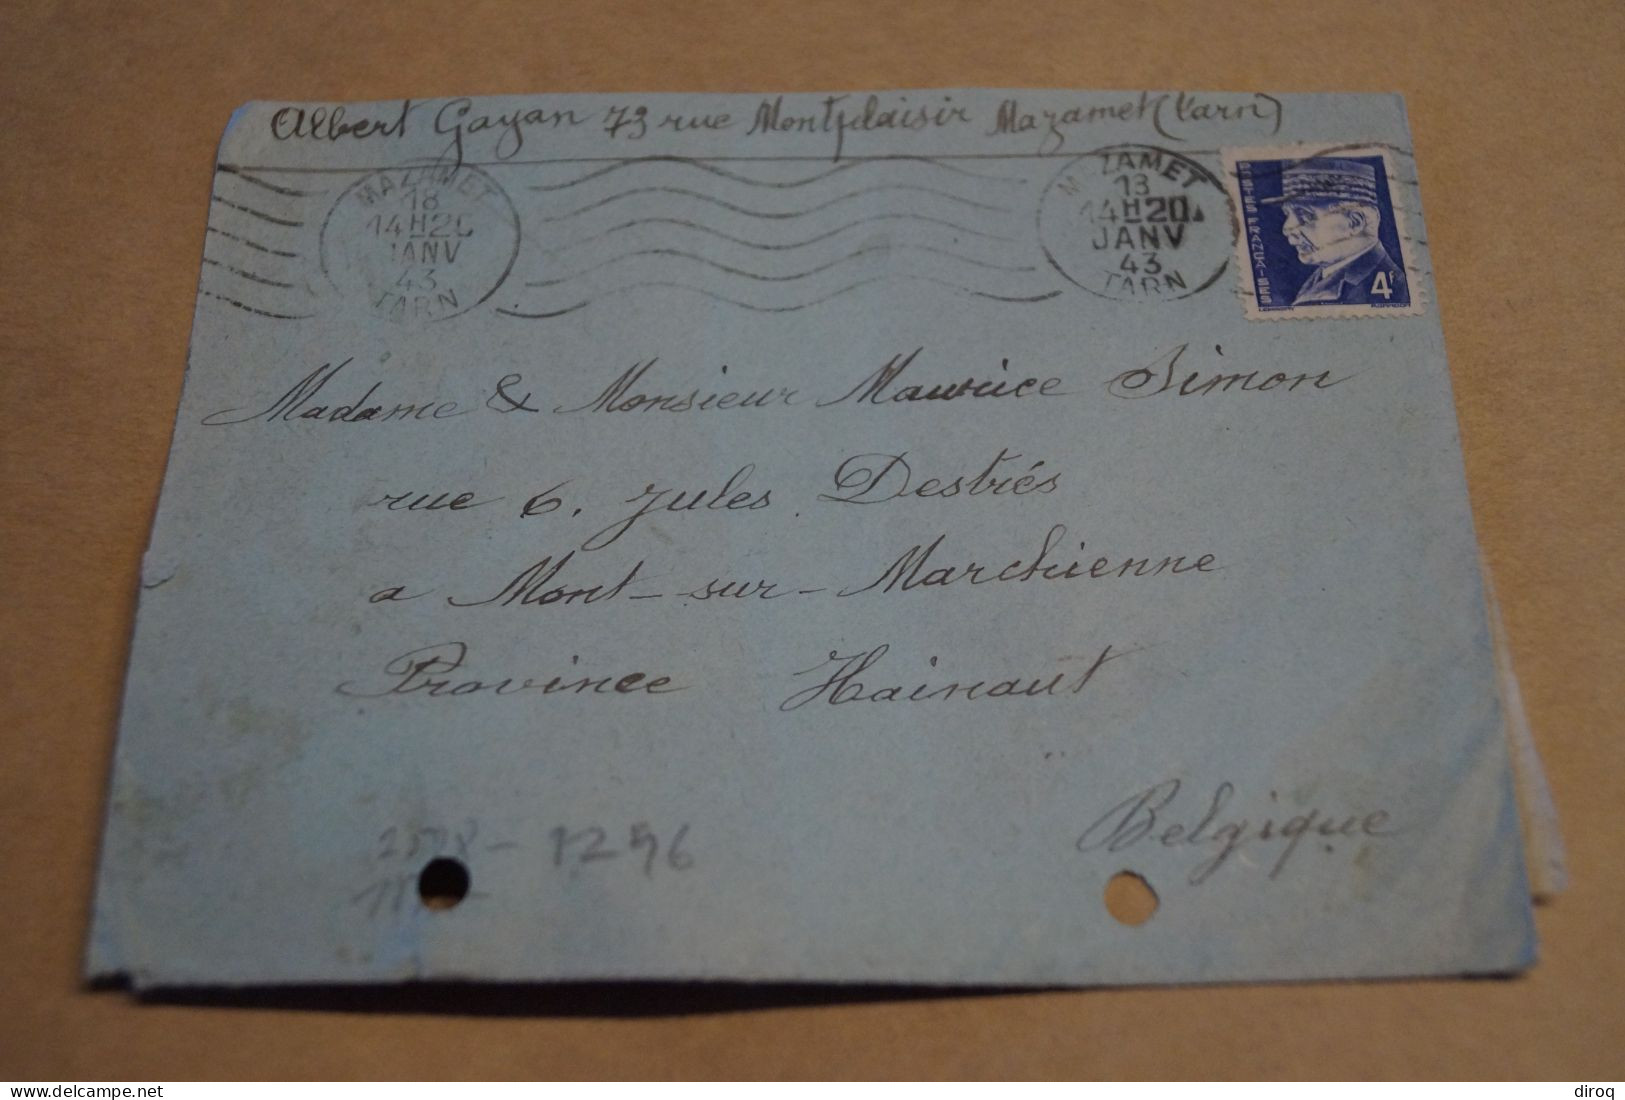 Albert Gayan 73 rue Montplaisir Mazamet (Tarn)
MAZAMET
18
14H20
JANV
43
TARN
MAZAMET
18
14H20
JANV
43
TARN
POSTES FRANÇAISES
4F
Madame & Monsieur Maurice Simon
rue 6. Jules Destrés
a Mont-sur-Marchienne
Province Hainaut
Belgique
1296
© delcampe.net
diroq